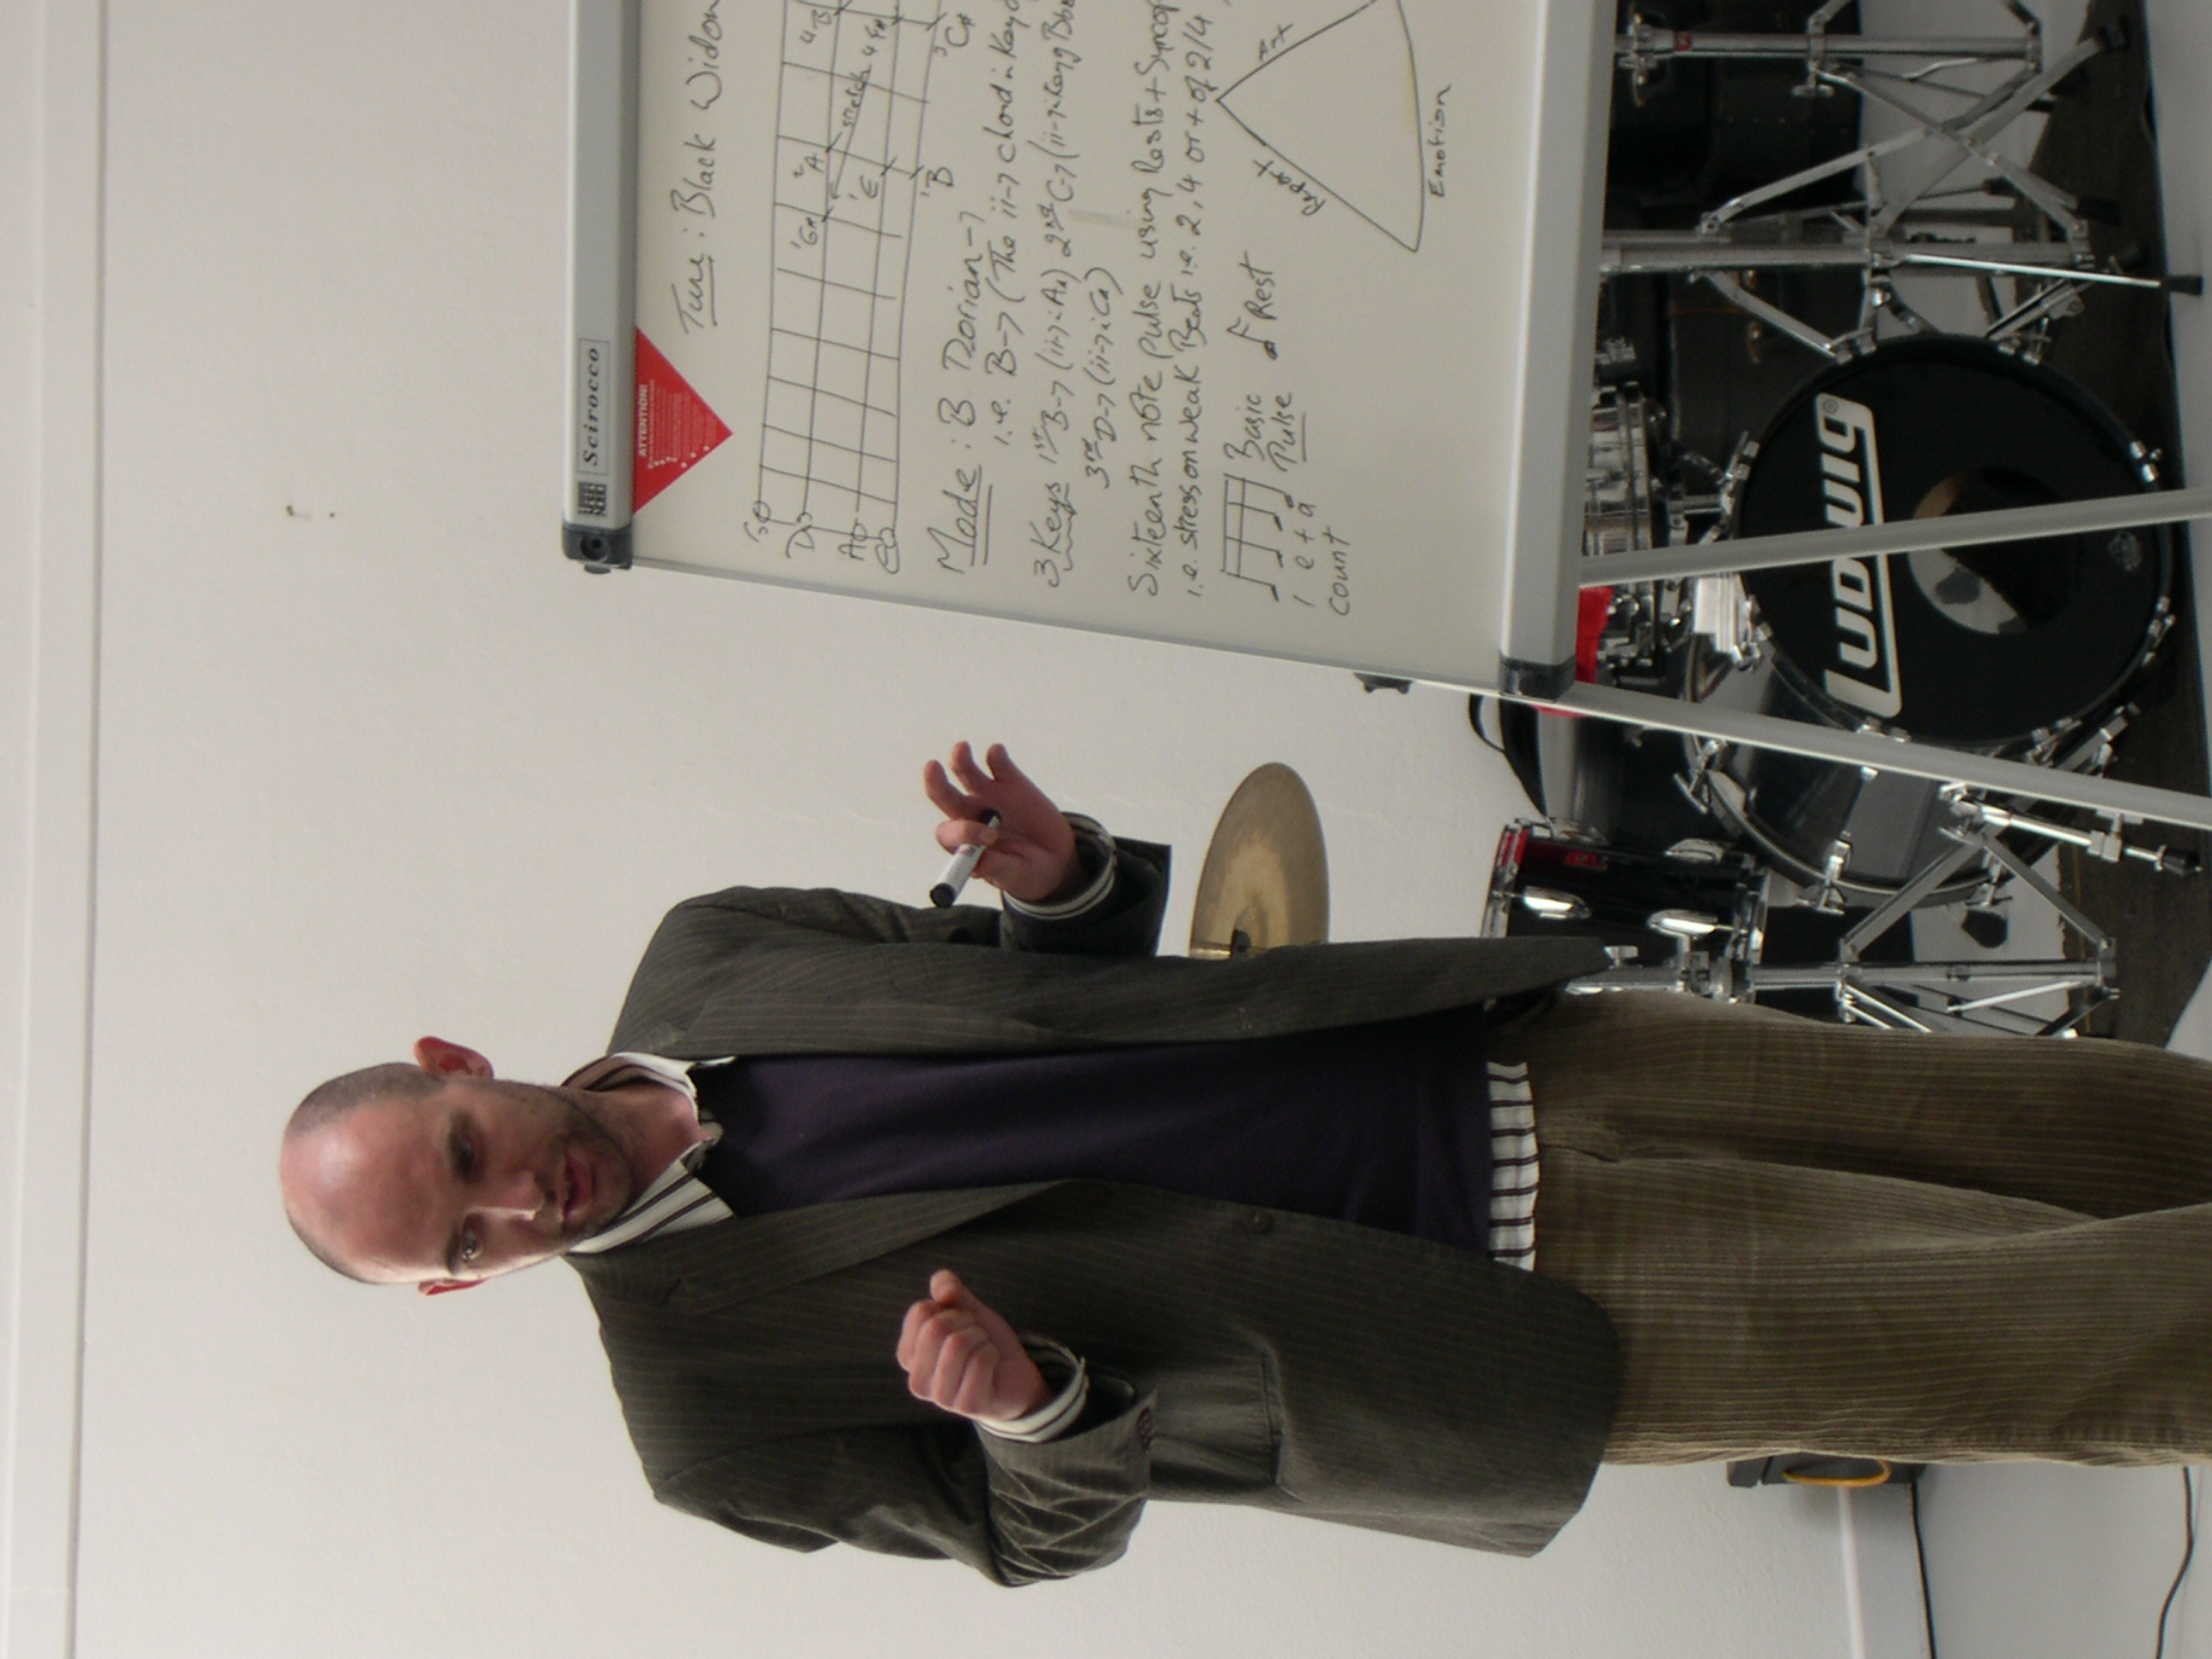 Scirocco
ATTENTION!
Tune : Black Widow
G
D
A
E
'G# 2A 4B
stretch
'E 4F#
'B 3C#
Mode : B Dorian -7
i.e. B-7 (The ii-7 chord in Key o
3 Keys 1st B-7 (ii-7 i A) 2nd C-7 (ii-7 i Key g Bb
3rd D-7 (ii-7 i C)
Sixteenth note pulse using Rests + Syncop
i.e. stress on weak Beats i.e. 2, 4 or + of 2/4
Basic
Pulse
Rest
1 e + a
count
Repeat
Emotion
LUDWIG®